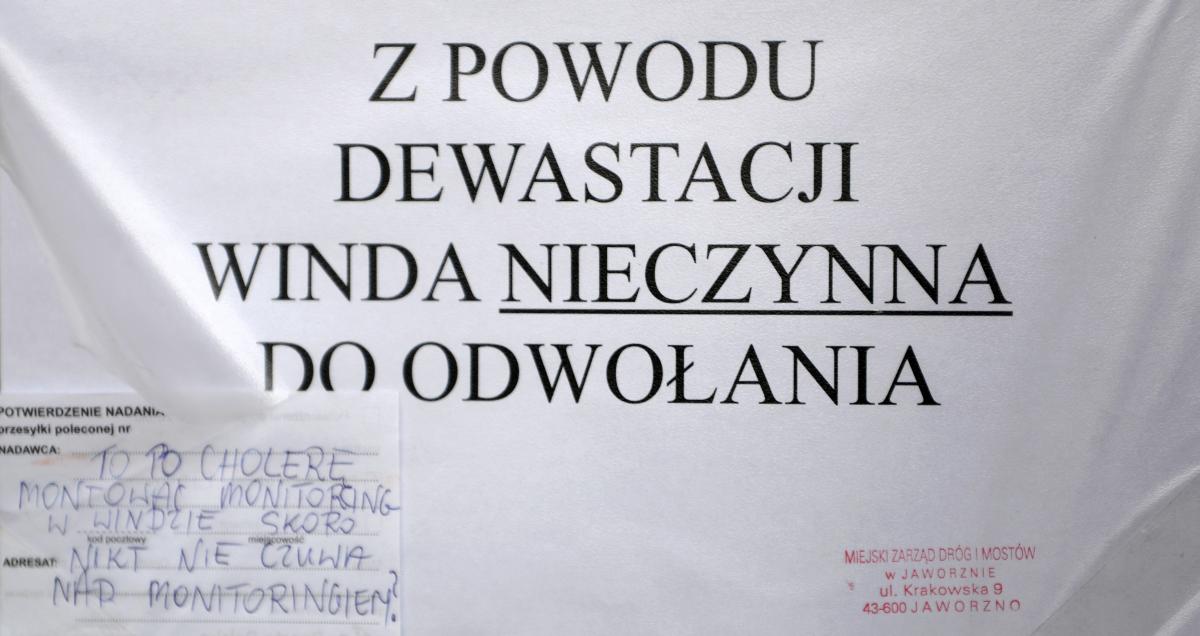 Z POWODU
DEWASTACJI
WINDA NIECZYNNA
DO ODWOŁANIA
POTWIERDZENIE NADANIA
przesyłki poleconej nr
NADAWCA:
TO PO CHOLERĘ
MONTOWAĆ MONITORING
W WINDZIE SKORO
kod pocztowy miejscowość
ADRESAT: NIKT NIE CZUWA
NAD MONITORINGIEM?
MIEJSKI ZARZĄD DRÓG I MOSTÓW
w JAWORZNIE
ul. Krakowska 9
43-600 JAWORZNO